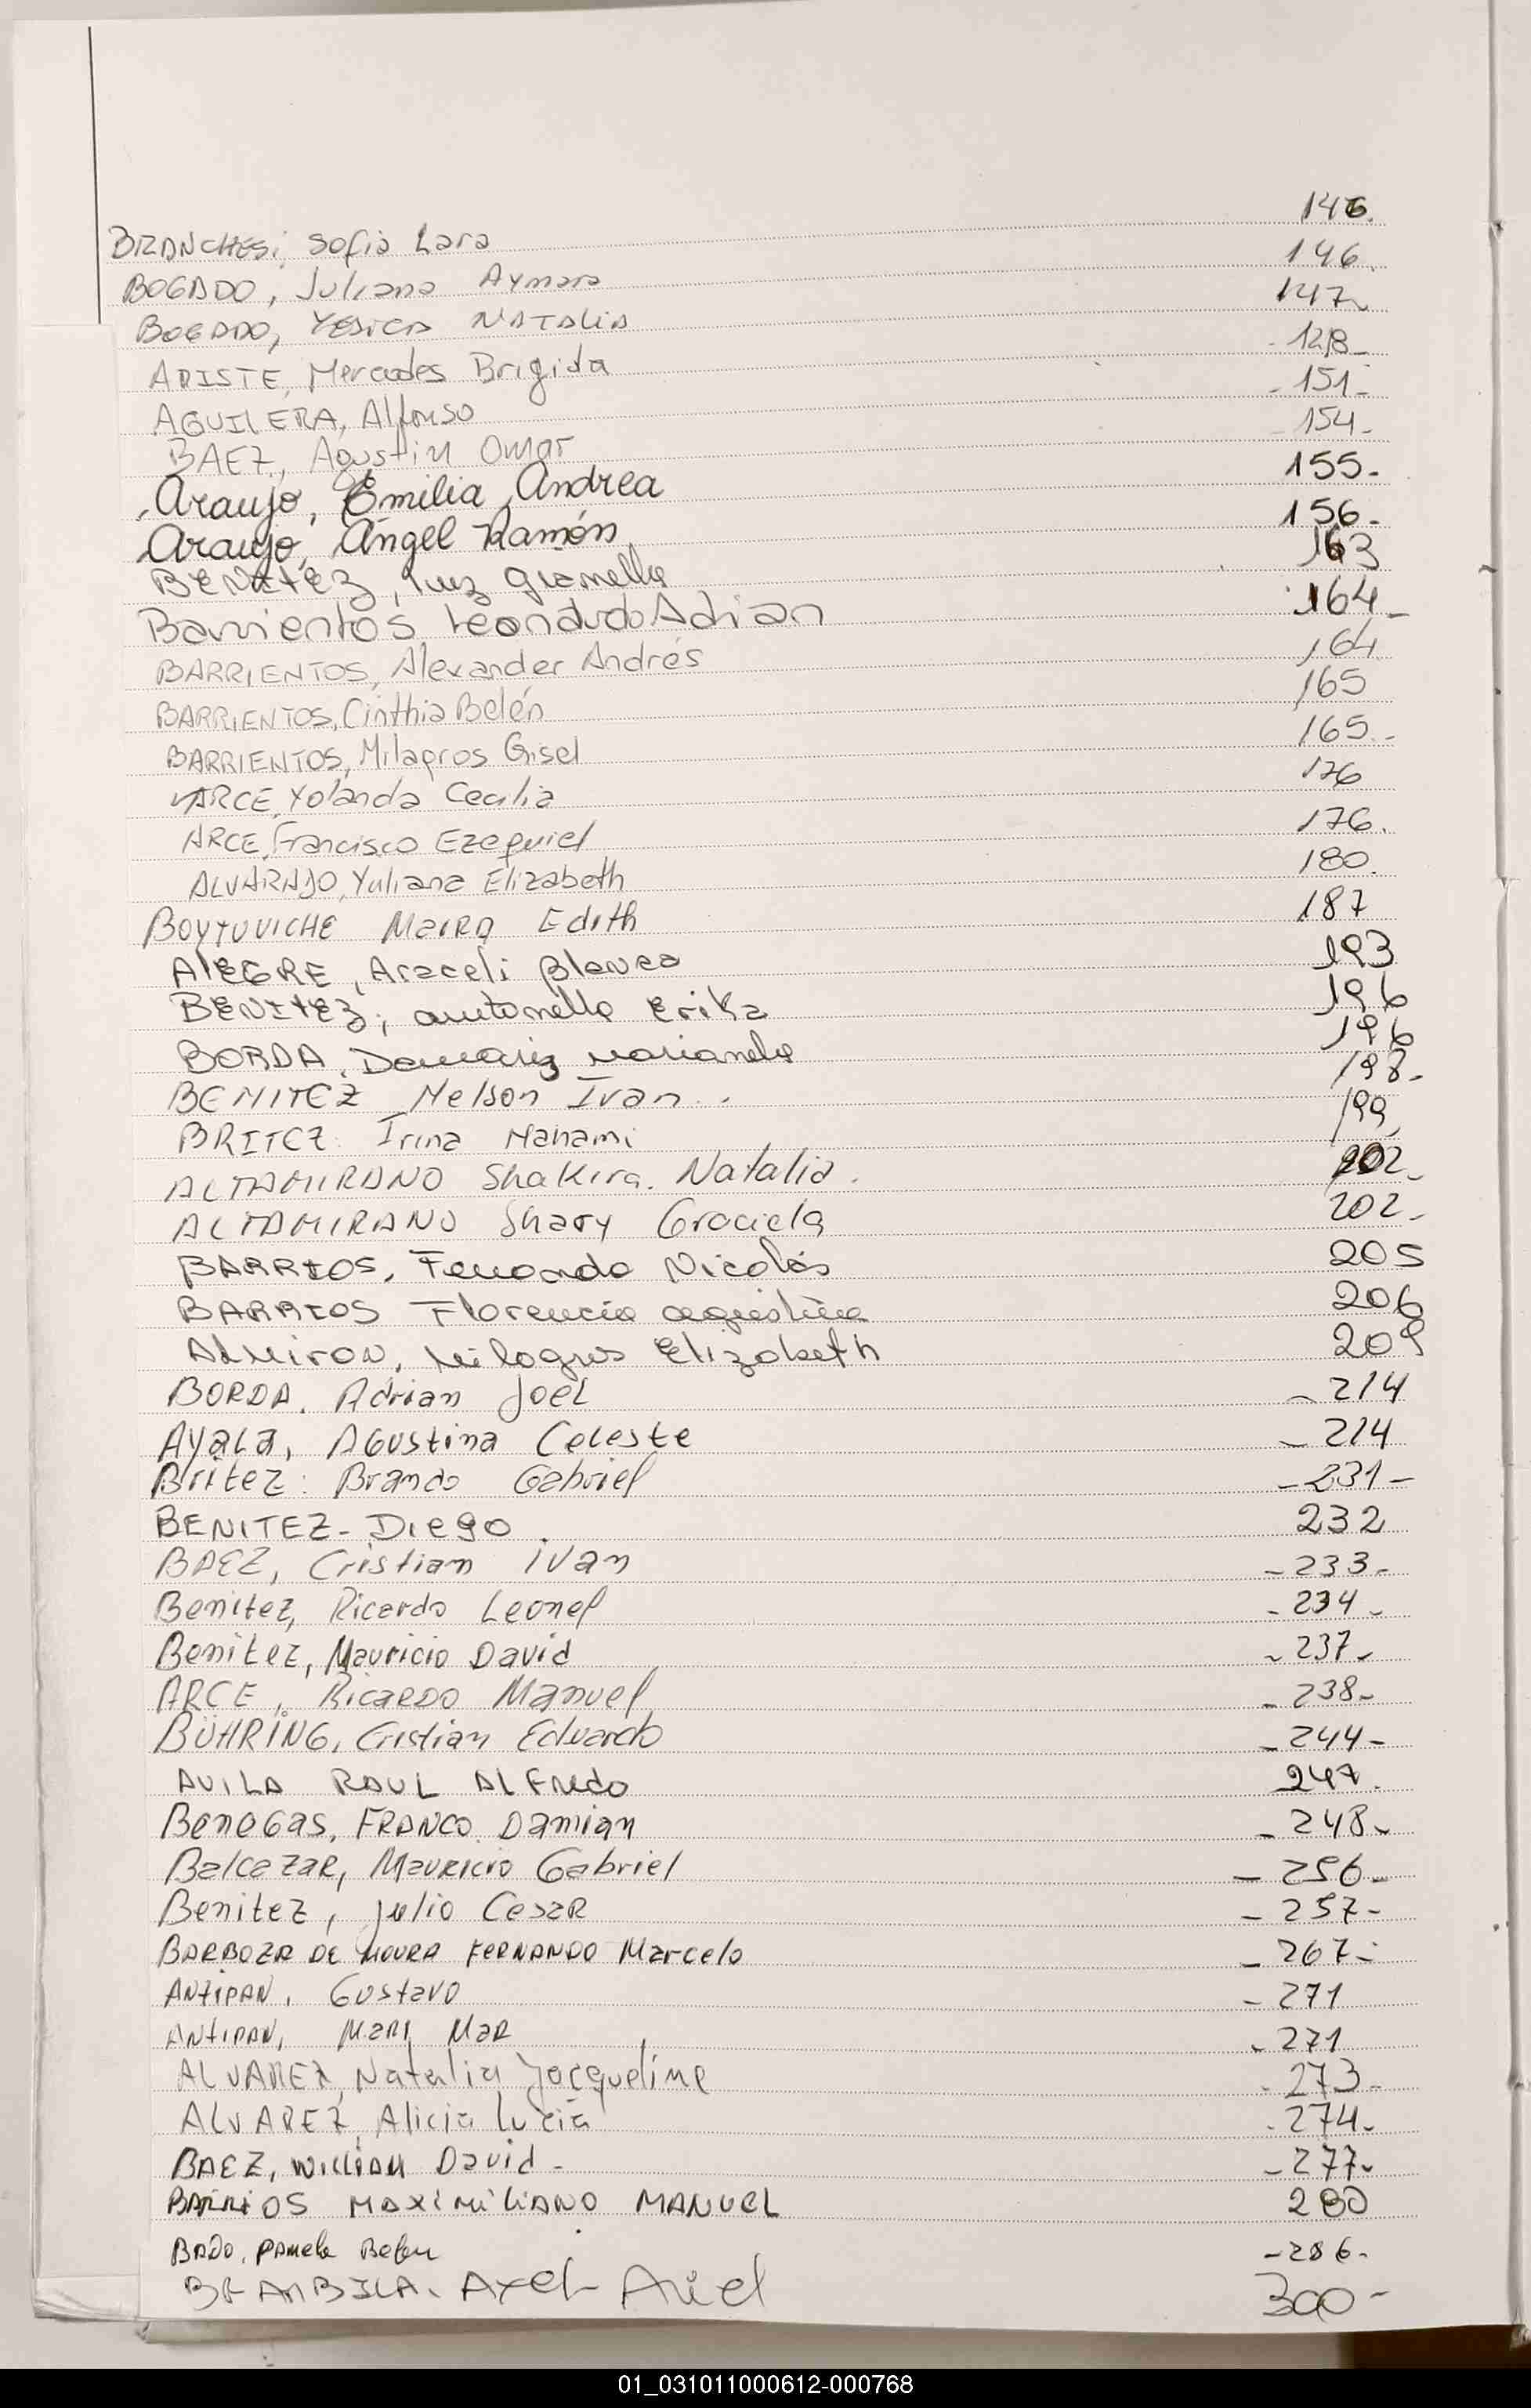 BRANCHESi, Sofia Lara 146.
BOGADO, Juliana Aymara 146.
BOGADO, YESICA NATALIA 147-
ARISTE, Mercedes Brigida - 128-
AGUILERA, Alfonso - 151-
BAEZ, Agustin Omar - 154-
Araujo, Emilia Andrea 155-
Araujo, Ángel Ramón 156-
BENITEZ, luz gianella 163
Barrientos Leonardo Adrian 164-
BARRIENTOS, Alexander Andrés 164
BARRIENTOS, Cinthia Belén 165
BARRIENTOS, Milagros Gisel 165-
ARCE, Yolanda Cecilia 176
ARCE, Francisco Ezequiel 176.
ALVARADO, Yuliana Elizabeth 180.
BOYTUVICHE Maira Edith 187
AlEGRE, Araceli Blanca 193
BENITEZ, antonella Erika 196
BORDA, Damaris marianela 196
BENITEZ Nelson Ivan.. 198-
BRITEZ Irina Nahami 199
ALTAMIRANO Shakira. Natalia. 202-
ALTAMIRANO Shary Graciela 202-
BARRIOS, Fernando Nicolás 205
BARRIOS Florencia agustina 206
ALMiRON, milagros Elizabeth 209
BORDA, Adrian Joel - 214
AyaLa, AGUstina Celeste - 214
Britez: Brando Gabriel - 231-
BENITEZ- DIEgO. 232
BAEZ, Cristian iVan - 233-
Benitez, Ricardo Leonel - 234-
Benitez, Mauricio David - 237-
ARCE, RicaRDO Manuel - 238-
BÜHRING, Cristian Eduardo - 244-
AVILA RAUL AlFredo 247.
BeneGas, FRANCO. Damian - 248-
BalcazaR, MauRicio Gabriel - 256-
Benitez, julio CesaR - 257-
BARBOZA DE MOURA FERNANDO Marcelo - 267-
ANtiPAN, Gustavo - 271
ANtiPAN, MaRi MaR - 271
ALVAREZ, Natalia Jacqueline - 273-
ALVAREZ, Alicia Lucia - 274-
BAEZ, WilliaM David - - 277-
BARRiOS MAXiMiliANO MANUEL 280
BADO, Pamela Belen - 286-
Axel Ariel 300-
01_031011000612-000768